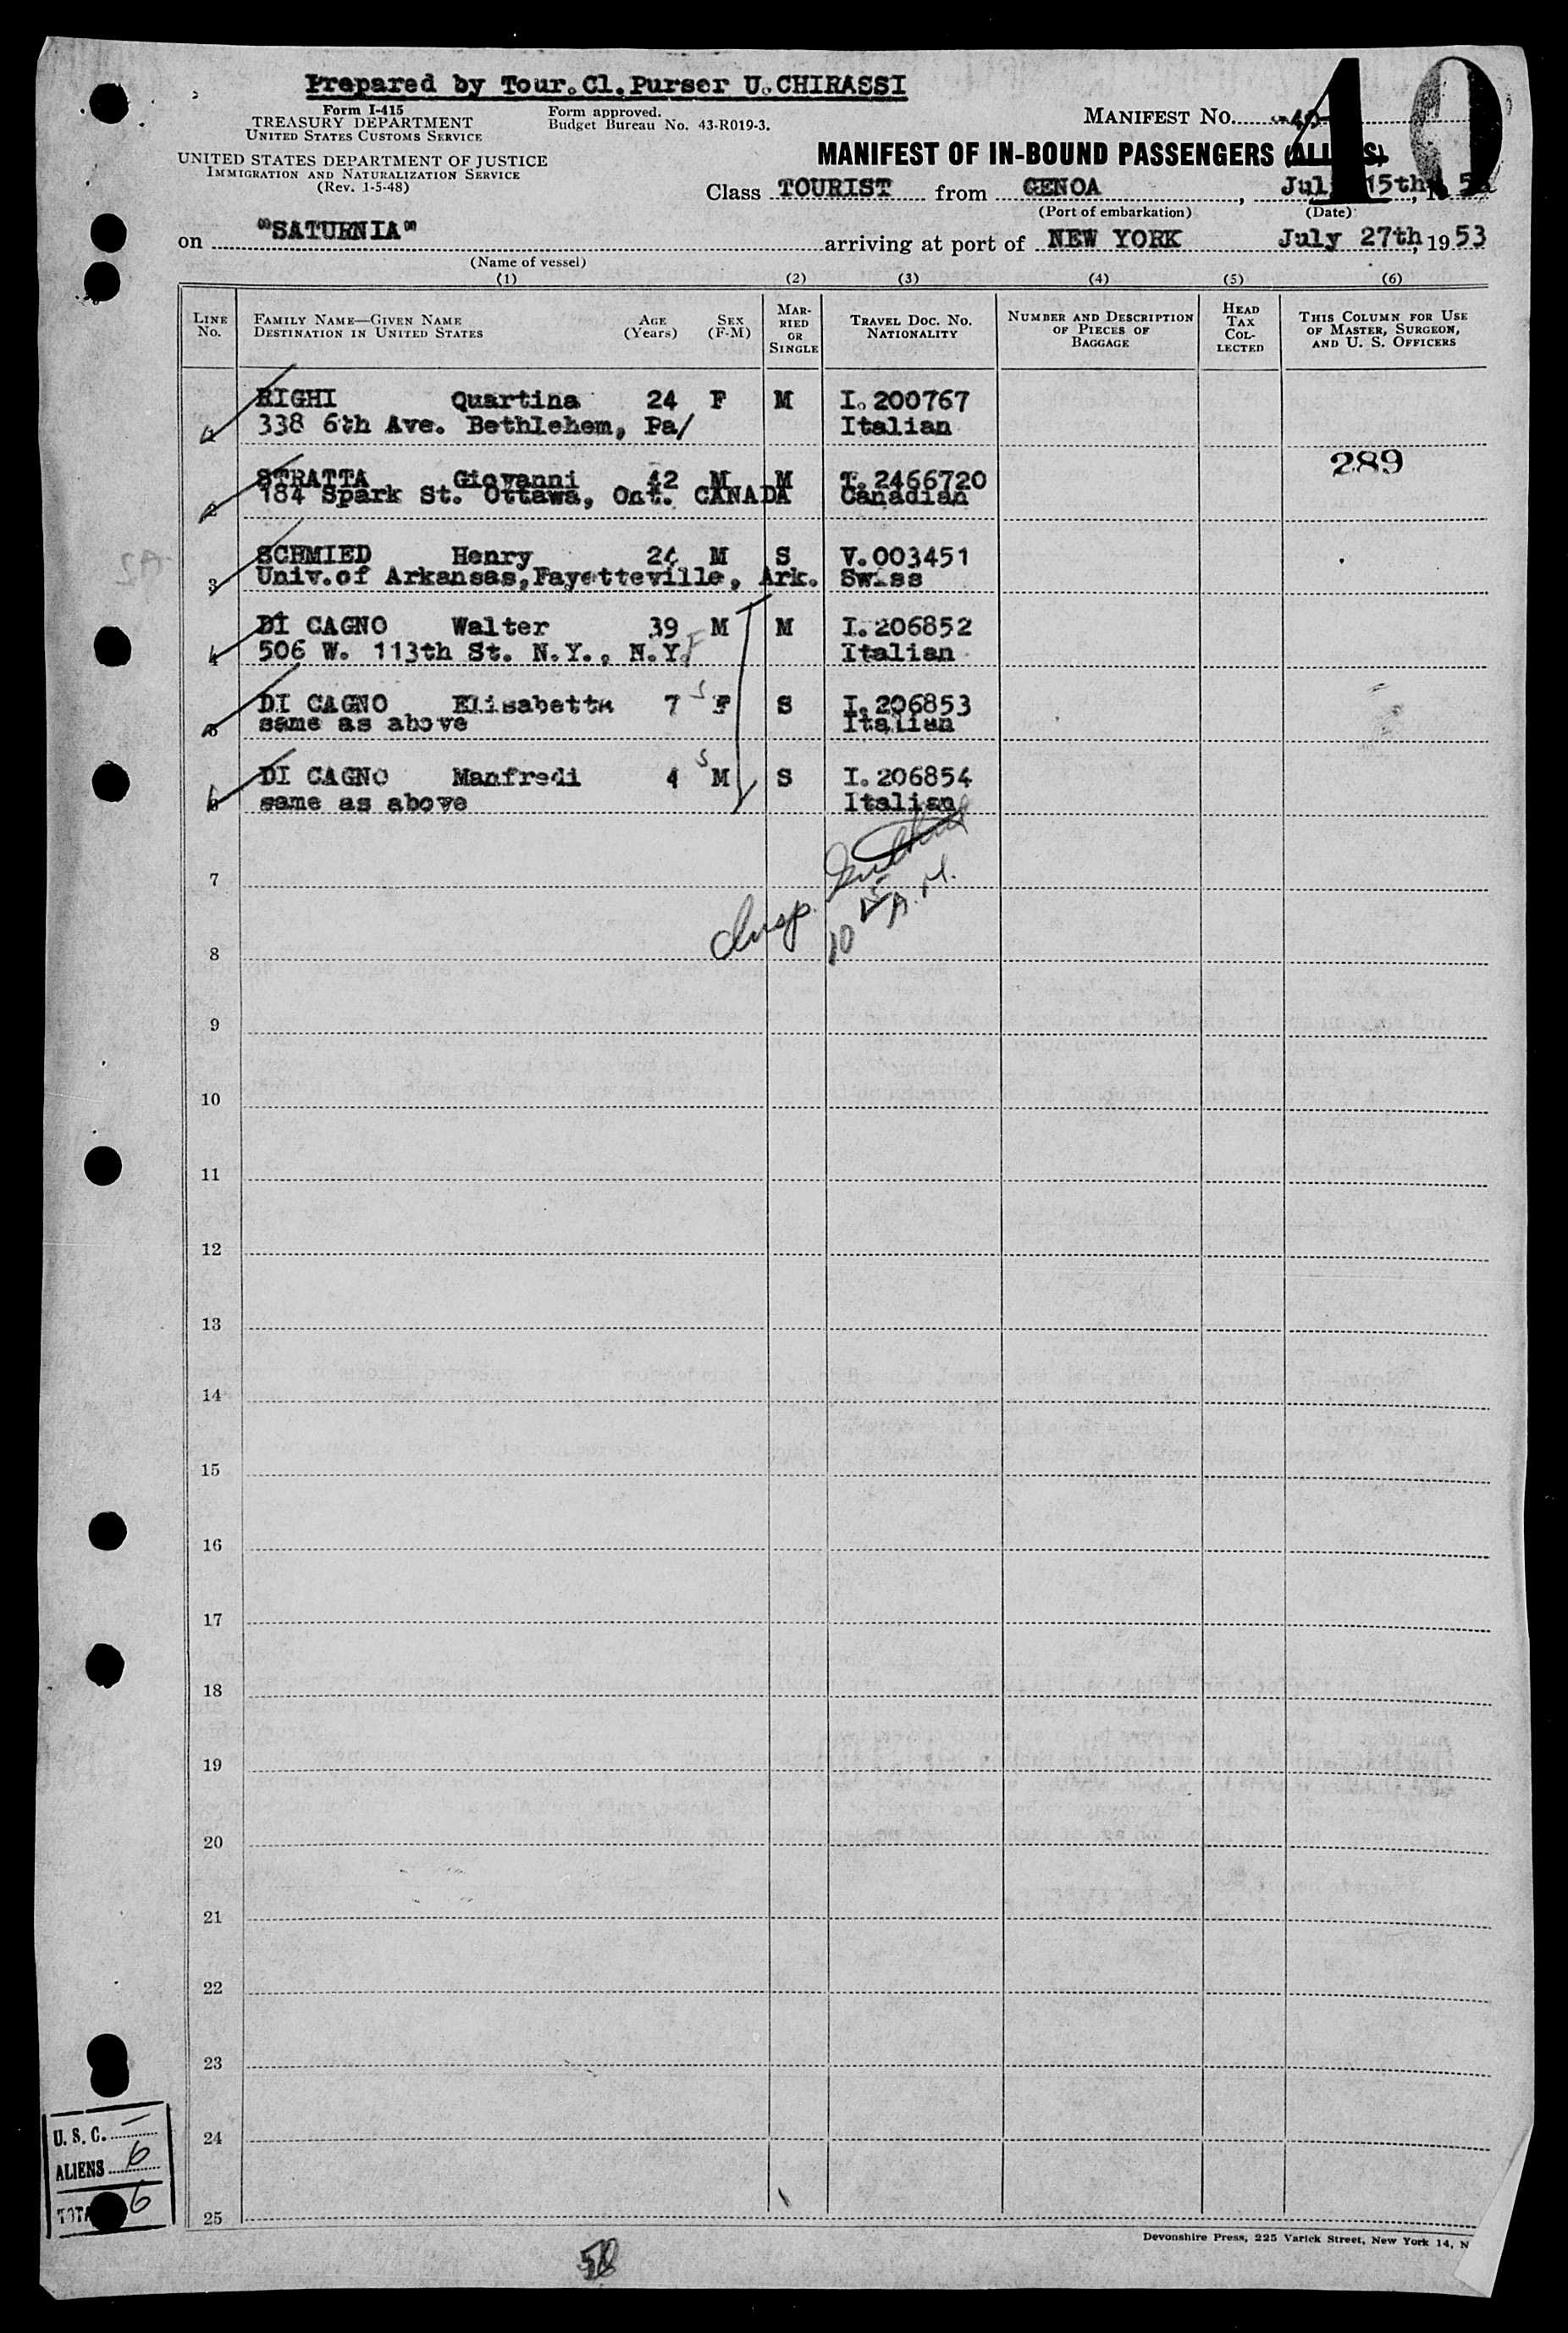 Prepared by Tour.Cl.Purser U.CHIRASSI
Form I-415
TREASURY DEPARTMENT
UNITED STATES CUSTOMS SERVICE
Form approved.
Budget Bureau No. 43-R019-3.
MANIFEST No. 40
40
UNITED STATES DEPARTMENT OF JUSTICE
IMMIGRATION AND NATURALIZATION SERVICE
(Rev. 1-5-48)
MANIFEST OF IN-BOUND PASSENGERS (ALIENS)
Class TOURIST from GENOA, July 15th, 19 53
(Port of embarkation) (Date)
on "SATURNIA" arriving at port of NEW YORK July 27th, 19 53
(Name of vessel)
(1) (2) (3) (4) (5) (6)
LINE No.
FAMILY NAME—GIVEN NAME
DESTINATION IN UNITED STATES
AGE (Years)
SEX (F-M)
MARRIED OR SINGLE
TRAVEL DOC. NO.
NATIONALITY
NUMBER AND DESCRIPTION OF PIECES OF BAGGAGE
HEAD TAX COLLECTED
THIS COLUMN FOR USE OF MASTER, SURGEON, AND U. S. OFFICERS
RIGHI Quartina 24 F M I.200767
338 6th Ave. Bethlehem, Pa/ Italian
289
STRATTA Giovanni 42 M M T.2466720
2 184 Spark St. Ottawa, Ont. CANADA Canadian
SCHMIED Henry 24 M S V.003451
3 Univ.of Arkansas,Fayetteville, Ark. Swiss
DI CAGNO Walter 39 M M I.206852
4 506 W. 113th St. N.Y., N.Y. F Italian
DI CAGNO Elisabetta 7 S F S I.206853
same as above Italian
DI CAGNO Manfredi 4 S M S I.206854
same as above Italian
Insp.
10 15 A.M.
7
8
9
10
11
12
13
14
15
16
17
18
19
20
21
22
23
24
25
U. S. C. –
ALIENS 6
TOTAL 6
Devonshire Press, 225 Varick Street, New York 14, N
58